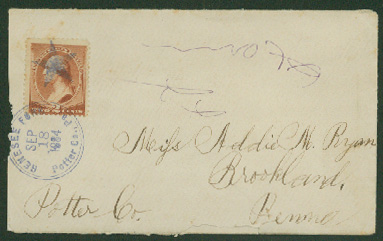 GENESEE FO
SEP
18
1884
Potter Co.
Miss Addie M. Ryan
Brookland,
Potter Co. Penna